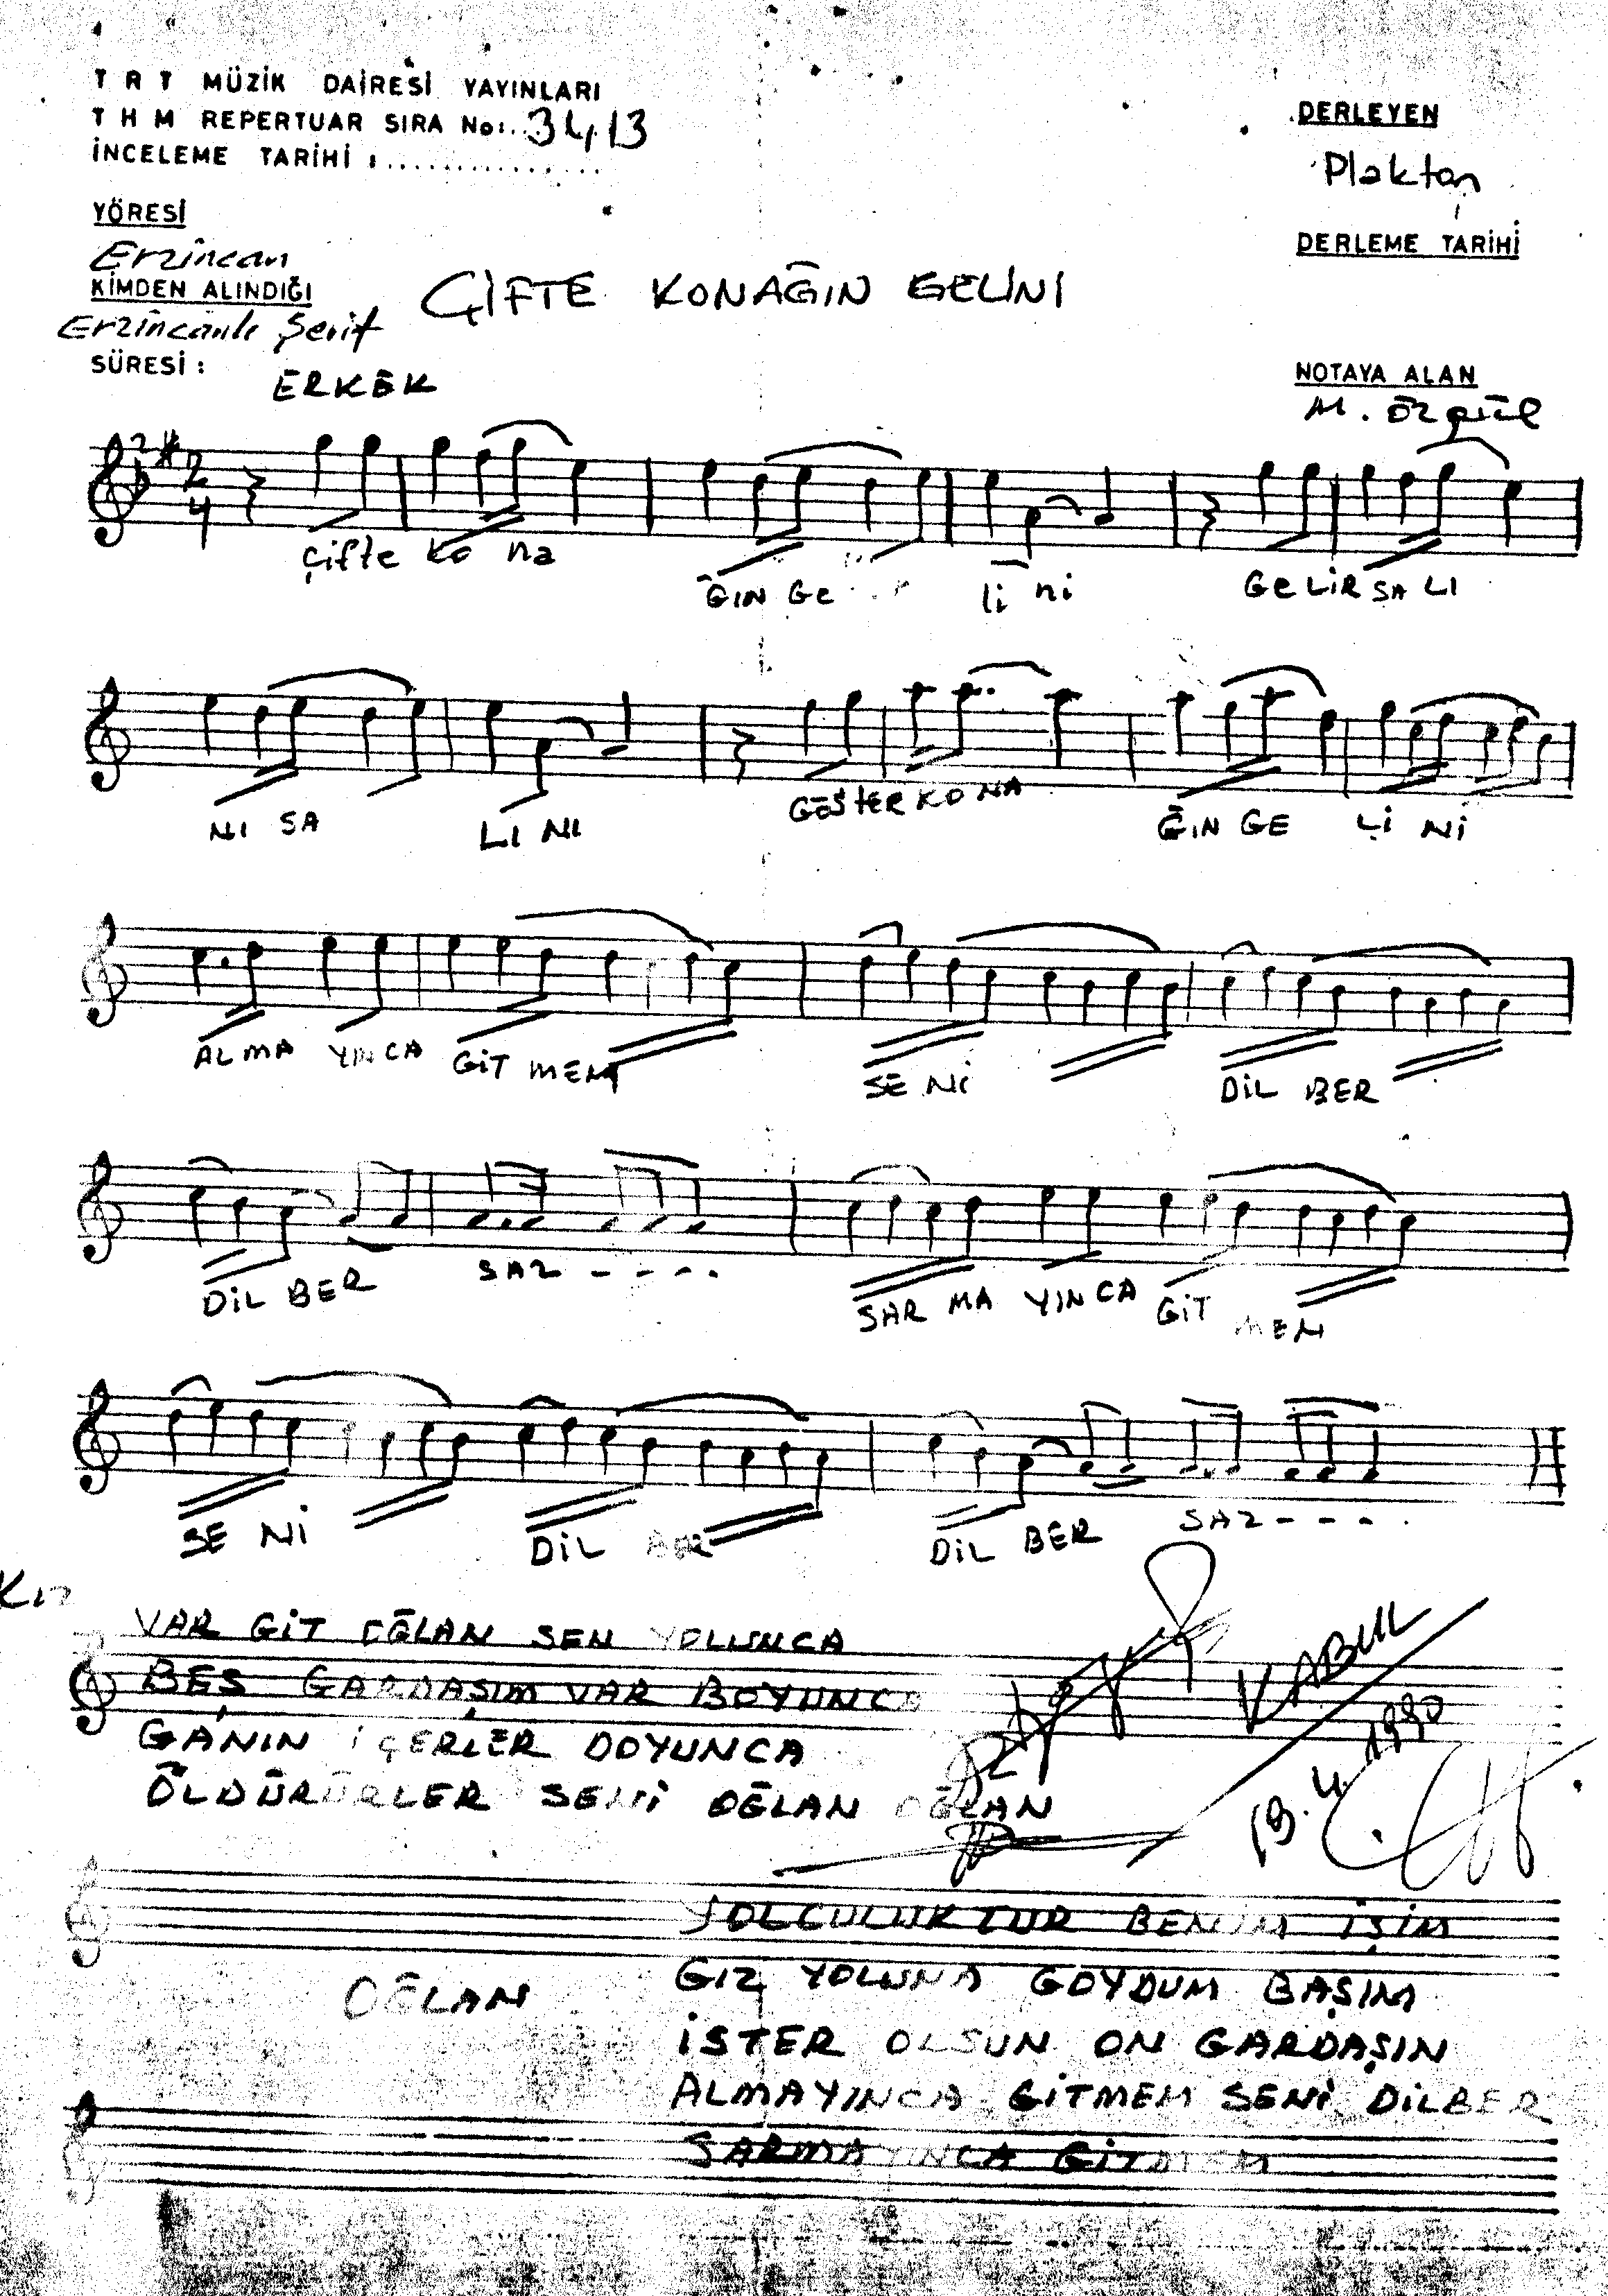 T R T MÜZİK DAİRESİ YAYINLARI
T H M REPERTUAR SIRA No: 3413
İNCELEME TARİHİ :
DERLEYEN
Plaktan
YÖRESİ
Erzincan
DERLEME TARİHİ
KİMDEN ALINDIĞI
Erzincanlı Şerif
ÇİFTE KONAĞIN GELİNİ
SÜRESİ :
ERKEK
NOTAYA ALAN
M. Özgül
2
4
Çifte Ko na ĞIN Ge li ni GeLİR SA LI
NI SA LI NI GÖSTER KO NA ĞIN GE Lİ Nİ
AL MA YIN CA GİT MEM SE Nİ DİL BER
DİL BER SAZ - - - . SAR MA YIN CA GİT MEM
SE Nİ DİL BER DİL BER SAZ - - - .
KIZ
VAR GİT OĞLAN SEN YOLUNCA
BEŞ GARDAŞIM VAR BOYUNCA
GANIN İÇERLER DOYUNCA
ÖLDÜRÜRLER SENİ OĞLAN OĞLAN
KABUL
19.4.1990
YOLCULUKTUR BENİM İŞİM
OĞLAN
GIZ YOLUNA GOYDUM BAŞIM
İSTER OLSUN ON GARDAŞIN
ALMAYINCA GİTMEM SENİ DİLBER
SARMAYINCA GİTMEM